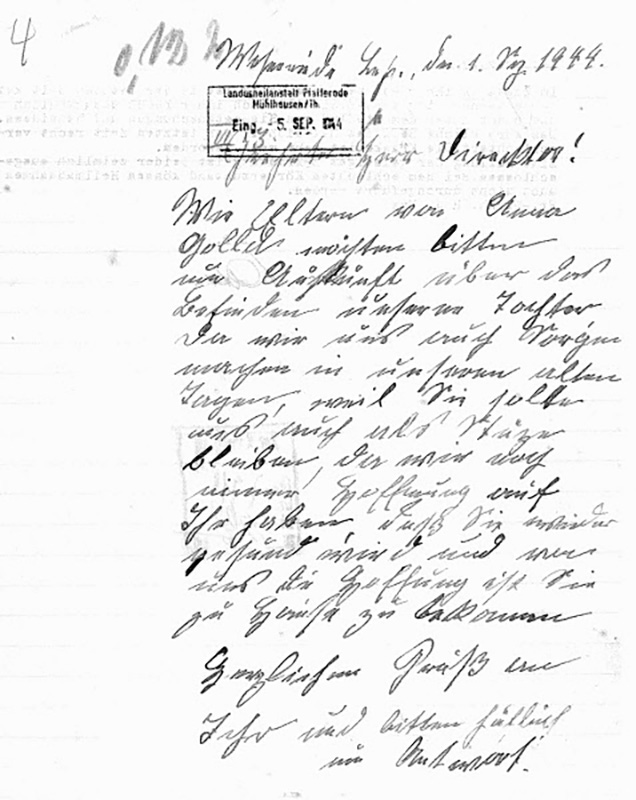 4
den 1. 1944.
Landesheilanstalt Pfafferode
Mühlhausen/Th.
Eing. 5. SEP. 1944
Herr Direcktor!
Wir Eltern von Anna
möchten bitten
um Auskunft über das
Befinden unserer Tochter
Da wir uns auch Sorgen
machen in unseren alten
Tagen, weil Sie sollte
uns auch als Stüze
bleiben, da wir noch
immer Hoffnung auf
Ihr haben, daß Sie wieder
gesund wird und von
uns die Hoffung ist Sie
zu Hause zu bekomen
Herzlichen Grüß an
Ihr und bitten höflich
um Antwort.